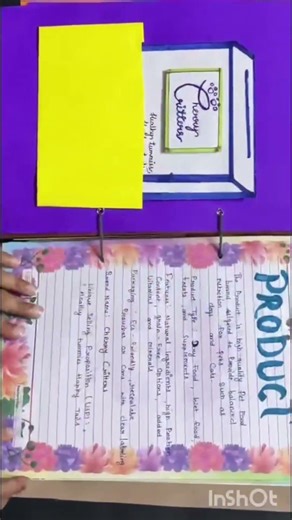 Cherry
Critters
Healthy tummies
PRODUCT
The Product is high quality Pet Food
brand designed to Provide balanced
nutrition for pets such as
dogs and Cats.
Product Type: Dry food, wet food,
treats and Supplements.
Features: Natural ingredients, high Protein
Content, grain-free options, added
Vitamins and minerals
Packaging: Eco friendly, resealable
Pouches or Cans with clear labeling
Brand Name: Cherry Critters
Unique Selling Proposition (USP):
Healthy tummies Happy Tails
InShOt